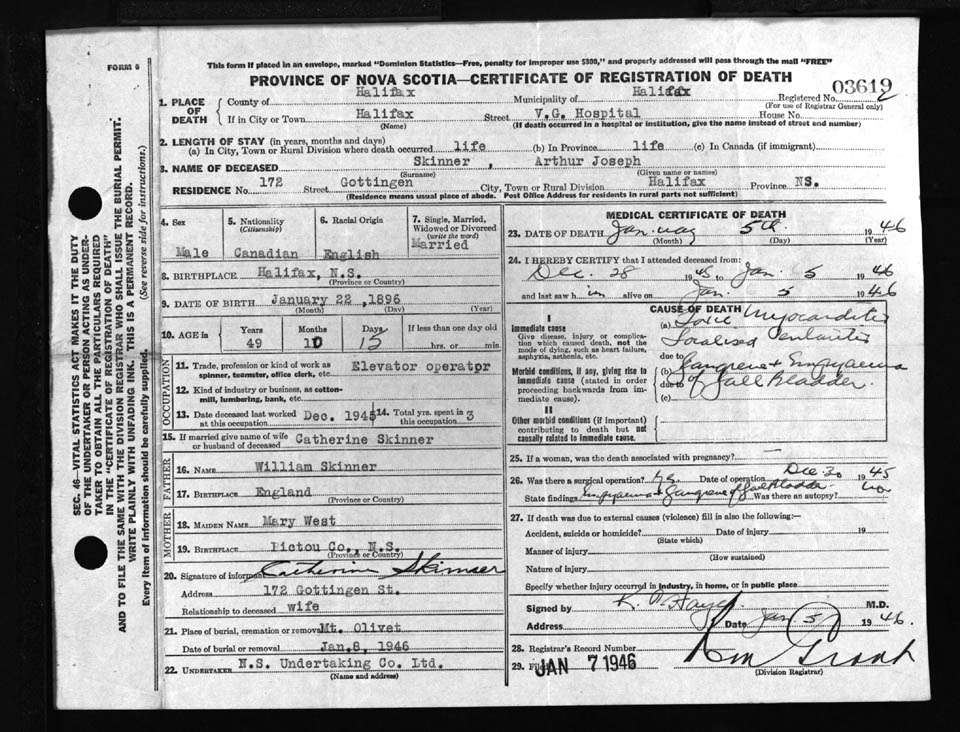 FORM 6
This form if placed in an envelope, marked "Dominion Statistics—Free, penalty for improper use $300," and properly addressed will pass through the mail "FREE"
PROVINCE OF NOVA SCOTIA—CERTIFICATE OF REGISTRATION OF DEATH
03619
1. PLACE OF DEATH
County of Halifax Municipality of Halifax Registered No.
(For use of Registrar General only)
If in City or Town Halifax Street V.G. Hospital House No.
(Name) (If death occurred in a hospital or institution, give the name instead of street and number)
2. LENGTH OF STAY (in years, months and days)
(a) In City, Town or Rural Division where death occurred life (b) In Province life (c) In Canada (if immigrant)
3. NAME OF DECEASED Skinner , Arthur Joseph
(Surname) (Given name or names)
RESIDENCE No. 172 Street Gottingen City, Town or Rural Division Halifax Province NS.
(Residence means usual place of abode. Post Office Address for residents in rural parts not sufficient)
4. Sex
Male
5. Nationality
(Citizenship)
Canadian
6. Racial Origin
English
7. Single, Married, Widowed or Divorced
(write the word)
Married
8. BIRTHPLACE Halifax, N.S.
(Province or Country)
9. DATE OF BIRTH January 22, 1896
(Month) (Day) (Year)
10. AGE in
Years Months Days If less than one day old
49 11 15 hrs. or min.
OCCUPATION
11. Trade, profession or kind of work as Elevator operator
spinner, teamster, office clerk, etc.
12. Kind of industry or business, as cotton-
mill, lumbering, bank, etc.
13. Date deceased last worked at this occupation Dec. 1945 14. Total yrs. spent in this occupation 3
15. If married give name of wife or husband of deceased Catherine Skinner
FATHER
16. NAME William Skinner
17. BIRTHPLACE England
(Province or Country)
MOTHER
18. MAIDEN NAME Mary West
19. BIRTHPLACE Pictou Co., N.S.
(Province or Country)
20. Signature of informant Catherine Skinner
Address 172 Gottingen St.
Relationship to deceased wife
21. Place of burial, cremation or removal Mt. Olivet
Date of burial or removal Jan.8, 1946
22. UNDERTAKER N.S. Undertaking Co. Ltd.
(Name and address)
MEDICAL CERTIFICATE OF DEATH
23. DATE OF DEATH January 5th. 1946
(Month) (Day) (Year)
24. I HEREBY CERTIFY that I attended deceased from:
Dec. 28 1945 to Jan. 5 1946
and last saw him alive on Jan. 5 1946
CAUSE OF DEATH
I
Immediate cause
Give disease, injury or complication which caused death, not the mode of dying, such as heart failure, asphyxia, asthenia, etc.
(a) Toxic Myocarditis
Localised Peritonitis
due to
Morbid conditions, if any, giving rise to immediate cause (stated in order proceeding backwards from immediate cause).
(b) Gangrene & Empyaema
due to of Gall Bladder.
(c)
II
Other morbid conditions (if important) contributing to death but not causally related to immediate cause.
25. If a woman, was the death associated with pregnancy? —
26. Was there a surgical operation? yes. Date of operation Dec. 30 1945
State findings Empyaema & Gangrene of Gall Bladder Was there an autopsy? No
27. If death was due to external causes (violence) fill in also the following:—
Accident, suicide or homicide? Date of injury 19
(State which)
Manner of injury
(How sustained)
Nature of injury
Specify whether injury occurred in industry, in home, or in public place
Signed by M.D.
Address Date Jan 5 1946.
28. Registrar's Record Number
29. Filed JAN 7 1946
(Division Registrar)
SEC. 46—VITAL STATISTICS ACT MAKES IT THE DUTY
OF THE UNDERTAKER OR PERSON ACTING AS UNDER-
TAKER TO OBTAIN ALL THE PARTICULARS REQUIRED
IN THE "CERTIFICATE OF REGISTRATION OF DEATH"
AND TO FILE THE SAME WITH THE DIVISION REGISTRAR WHO SHALL ISSUE THE BURIAL PERMIT.
WRITE PLAINLY WITH UNFADING INK. THIS IS A PERMANENT RECORD.
Every item of information should be carefully supplied. (See reverse side for instructions.)